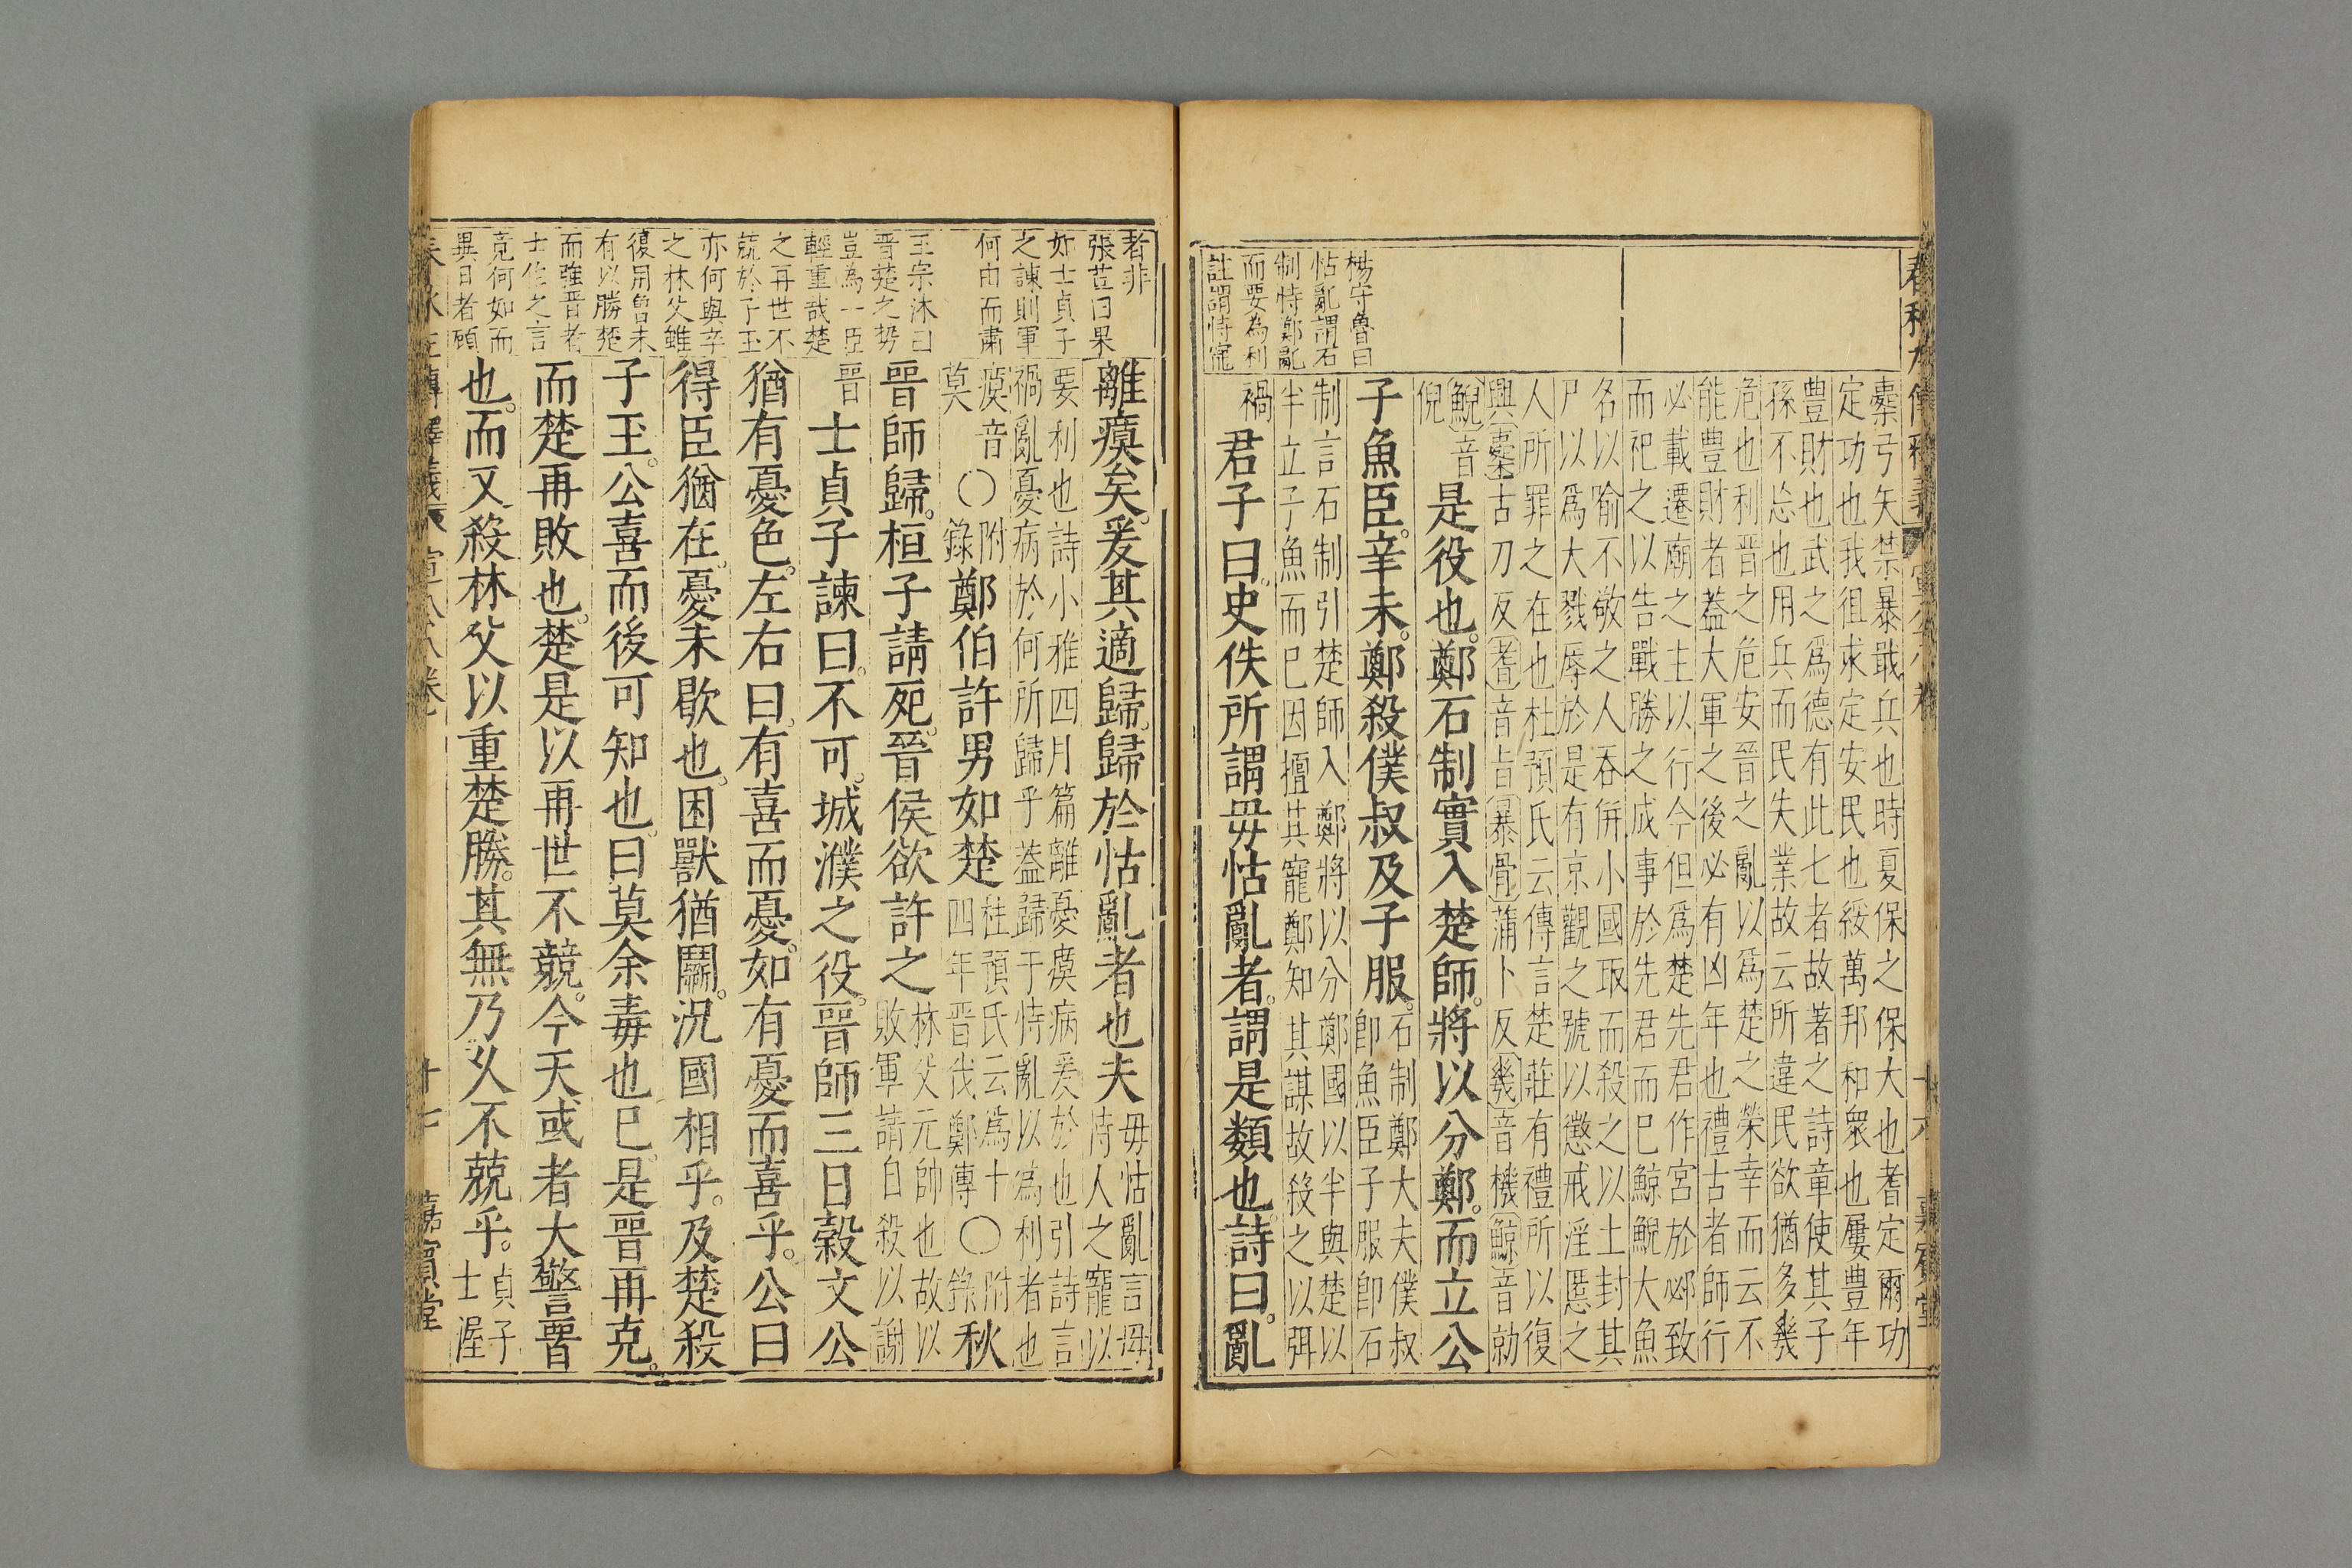 櫜弓矢禁暴戢兵也時夏保之保大也耆定爾功
定功也我徂求定安民也綏萬邦和衆也屢豊年
豊財也武之爲德有此七者故著之詩章使其子
孫不忘也用兵而民失業故云所違民欲猶多幾
危也利晋之危安晉之亂以爲楚之榮幸而云不
能豊財者葢大軍之後必有凶年也禮古者師行
必載遷廟之主以行今但爲楚先君作宮於邲致
而祀之以告戰勝之成事於先君而巳鯨鯢大魚
名以喻不敬之人吞併小國取而殺之以土封其
尸以爲大戮辱於是有京觀之號以懲戒淫慝之
人所罪之在也杜預氏云傳言楚莊有禮所以復
興櫜古刀反耆音旨暴骨蒲卜反幾音機鯨音勍
鯢音倪是役也鄭石制實入楚師將以分鄭而立公
子魚臣辛未鄭殺僕叔及子服石制鄭大夫僕叔
卽魚臣子服卽石
制言石制引楚師入鄭將以分鄭國以半與楚以
半立子魚而巳因擅其寵鄭知其謀故殺之以弭
禍君子曰史佚所謂毋怙亂者謂是類也詩曰亂
楊守魯曰
怙亂謂石
制恃鄭亂
而要為利
註謂恃寵
十六
嘉賓堂
者非
張荳曰果
如士貞子
之諫則軍
何由而肅
王宗沐曰
晋楚之勢
豈為一臣
輕重哉楚
之再世不
兢於子玉
亦何與辛
之林父雖
復用曾未
有以勝楚
而強晋者
士貞之言
竟何如而
異日者頋
離瘼矣爰其適歸歸於怙亂者也夫毋怙亂言毋
恃人之寵以
要利也詩小雅四月篇離憂瘼病爰於也引詩言
禍亂憂病於何所歸乎葢歸于恃亂以爲利者也
瘼音莫○附錄鄭伯許男如楚杜預氏云爲十
四年晋伐鄭傳○附錄秋
晋師歸桓子請死晉侯欲許之林父元帥也故以
敗軍請自殺以謝
晋士貞子諫曰不可城濮之役晋師三日穀文公
猶有憂色左右曰有喜而憂如有憂而喜乎公曰
得臣猶在憂未歇也困獸猶鬭況國相乎及楚殺
子玉公喜而後可知也曰莫余毒也巳是晋再克
而楚再敗也楚是以再世不競今天或者大警晋
也而又殺林父以重楚勝其無乃乆不兢乎貞子
士渥
春秋左傳釋義
宣公八卷
十七
嘉賓堂